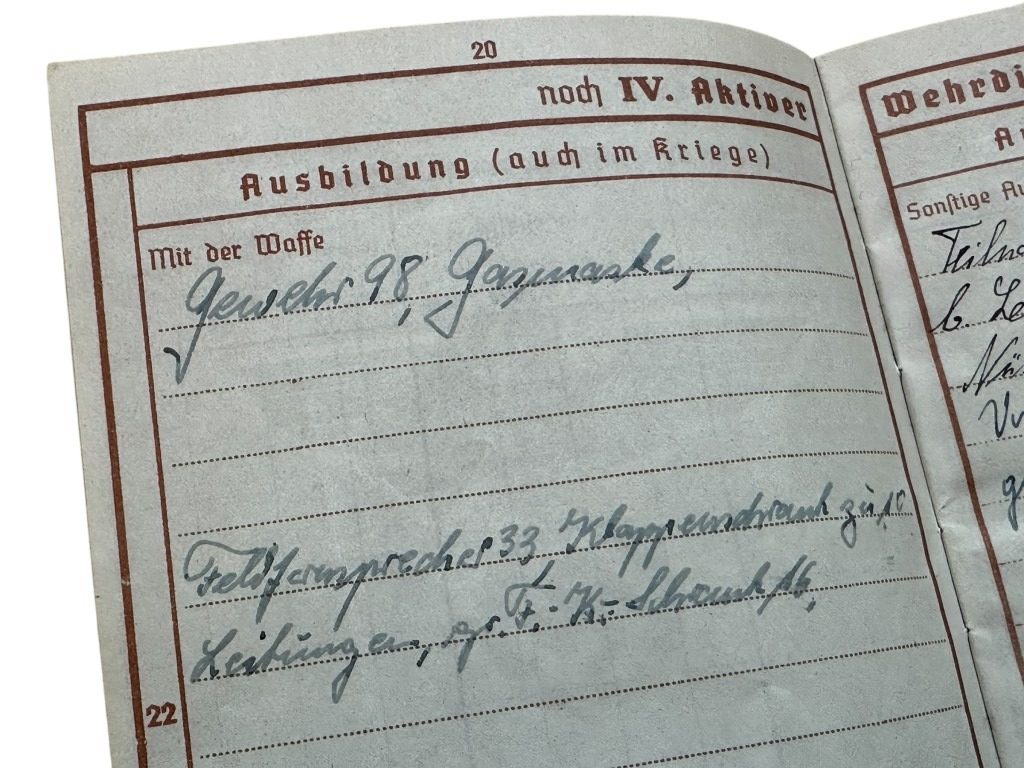 20
noch IV. Aktiver
Ausbildung (auch im Kriege)
Mit der Waffe
Gewehr 98, Gasmaske,
Feldfernsprecher 33 Klappenschrank zu 10
Leitungen, gr. F.-K.-Schrank 16,
22
Wehrdi
Sonstige Au
Teilne
b. Le
Nü